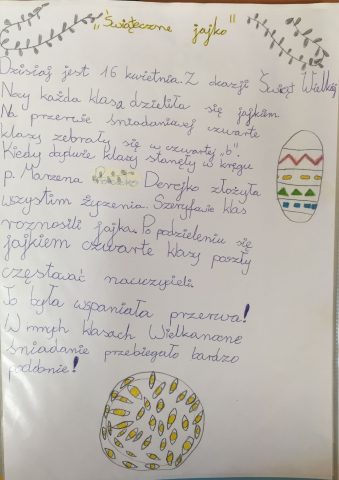 "Świąteczne jajko"
Dzisiaj jest 16 kwietnia. Z okazji Świąt Wielkiej
Nocy każda klasa dzieliła się jajkiem.
Na przerwie śniadaniowej czwarte
klasy zebrały się w czwartej "b".
Kiedy dwie klasy stanęły w kręgu
p. Marzena Derejko złożyła
wszystim życzenia. Szeryfowie klas
roznosili jajka. Po podzieleniu się
jajkiem czwarte klasy poszły
częstować nauczycieli.
To była wspaniała przerwa!
W innych klasach Wielkanocne
śniadanie przebiegało bardzo
podobnie!